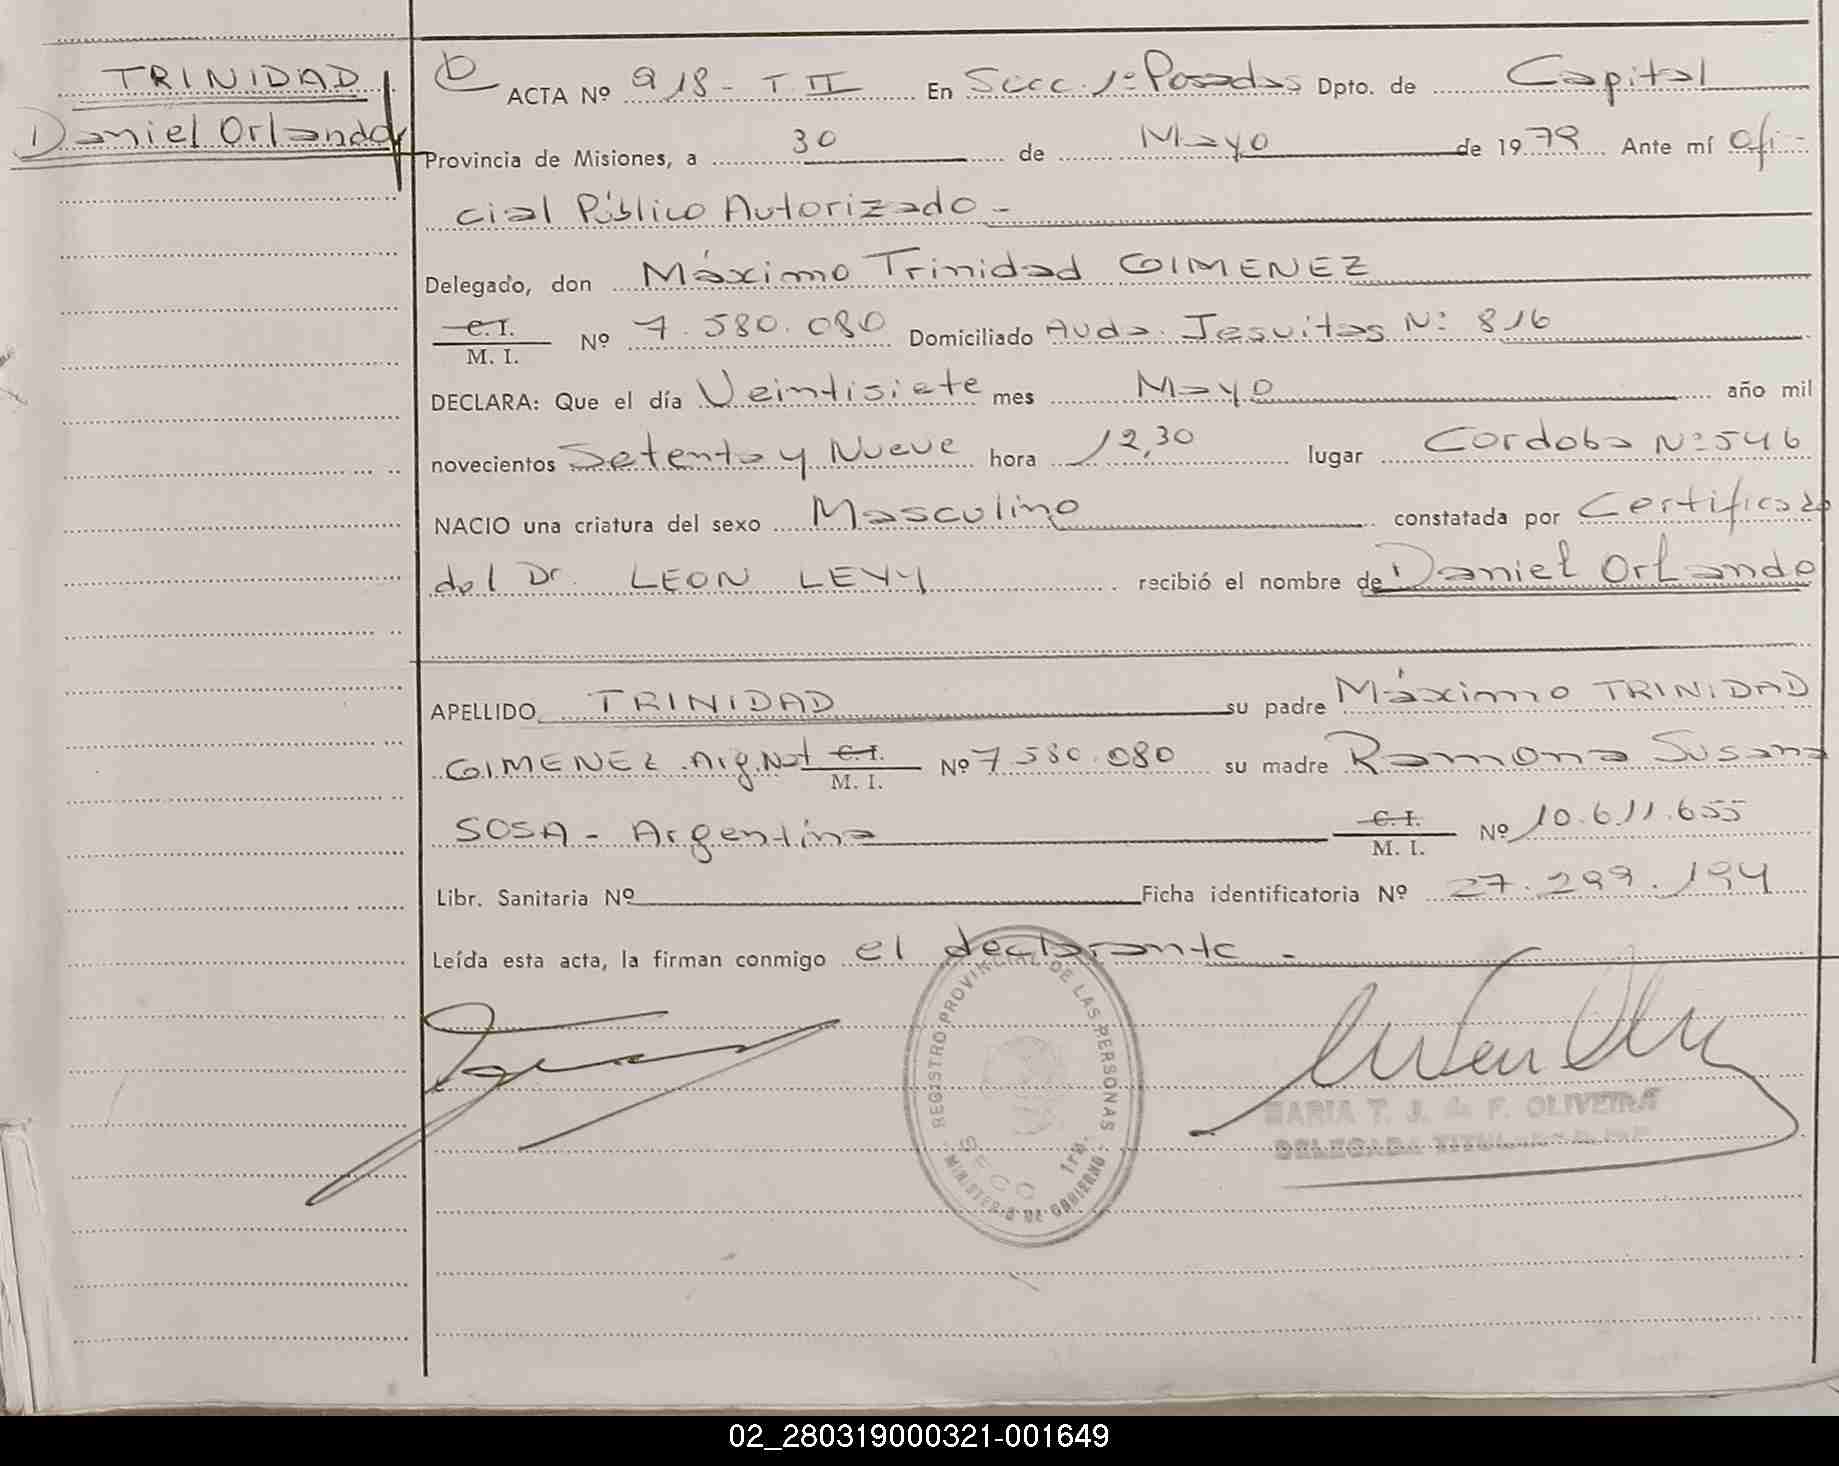 TRINIDAD
Daniel Orlando
ACTA Nº 918 - T II En Secc. 1º Posadas Dpto. de Capital
Provincia de Misiones, a 30 de Mayo de 1979 Ante mí Ofi-
cial Público Autorizado -
Delegado, don Máximo Trinidad GIMENEZ
C.I. M. I. Nº 7.580.080 Domiciliado Avda. Jesuitas Nº 816
DECLARA: Que el día Veintisiete mes Mayo año mil
novecientos Setenta y Nueve hora 12,30 lugar Cordoba Nº 546
NACIO una criatura del sexo Masculino constatada por Certificado
del Dr. LEON LEVY recibió el nombre de Daniel Orlando
APELLIDO TRINIDAD su padre Máximo TRINIDAD
GIMENEZ Arg. Nat C.I. M. I. Nº 7.580.080 su madre Ramona Susana
SOSA - Argentina C.I. M. I. Nº 10.611.655
Libr. Sanitaria Nº Ficha identificatoria Nº 27.299.194
Leída esta acta, la firman conmigo el declarante -
REGISTRO PROVINCIAL DE LAS PERSONAS
SECC 1ra.
MINISTERIO DE GOBIERNO
MARIA T. J. de F. OLIVEIRA
DELEGADA TITULAR
02_280319000321-001649